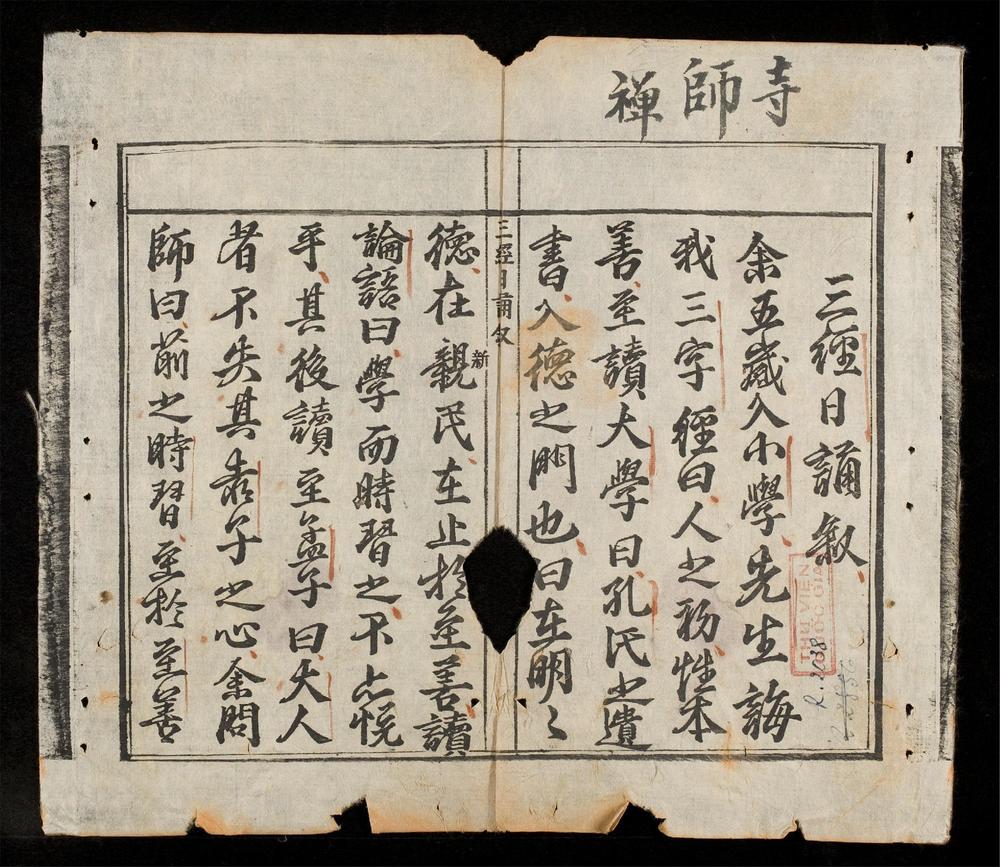 禅師寺
三經日誦叙
余五歲入小學先生誨
我三字經曰人之初性本
善至讀大學曰孔氏之遺
書入德之門也曰在明〻
三經日誦叙
德在親民在止於至善讀
新
論語曰學而時習之不亦悅
乎其後讀至孟子曰大人
者不失其赤子之心余問
師曰前之時習至於至善
THƯ VIỆN
QUỐC GIA
R.2038